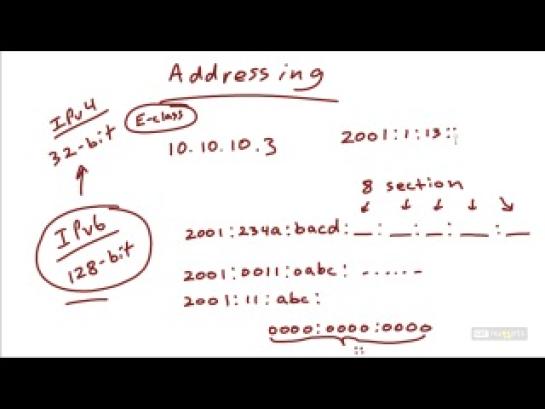 Addressing
IPv4
32-bit
E-class
10.10.10.3
2001:1:13::
8 section
IPv6
128-bit
2001:234a:bacd:__:__:__:__:__
2001:0011:0abc: ......
2001:11:abc:
0000:0000:0000
::